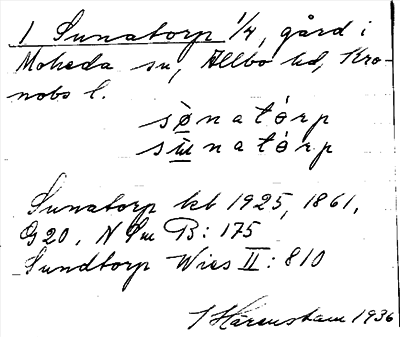 1 Sunatorp 1/4, gård i
Moheda sn, Allbo hd, Kro-
nobs l.
sònatórp
sùnatórp
Sunatorp kb 1925, 1861,
G 20, N Sm B: 175
Sundtorp Wies II: 810
Härenstam 1936